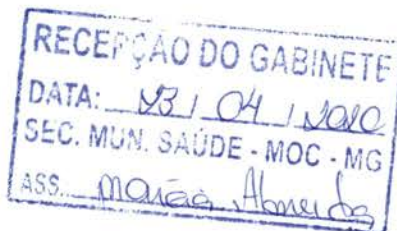 RECEPÇÃO DO GABINETE
DATA: 23 / 04 / 2020
SEC. MUN. SAÚDE - MOC - MG
ASS. Almeida